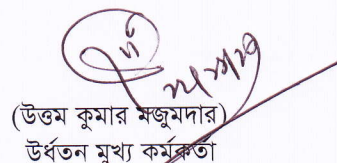 (উত্তম কুমার মজুমদার)
উর্ধতন মুখ্য কর্মকর্তা